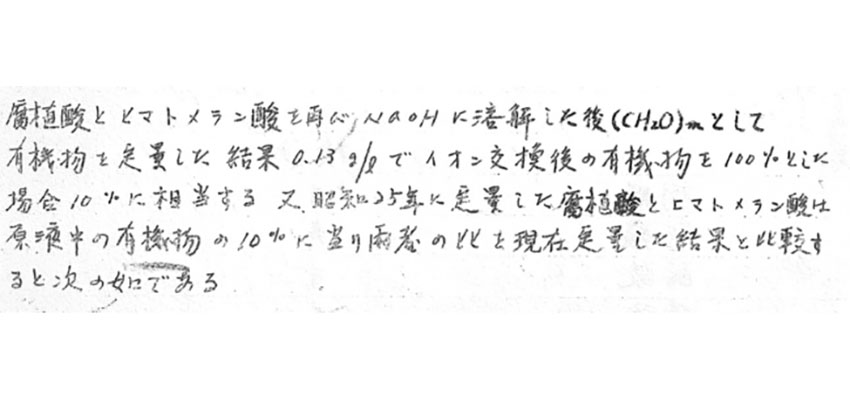 腐植酸とヒマトメラン酸を再びNaOHに溶解した後(CH₂O)mとして
有機物を定量した結果0.13g/lでイオン交換後の有機物を100%とした
場合10%に相当する 又昭和25年に定量した腐植酸とヒマトメラン酸は
原液中の有機物の10%に当り両者の比を現在定量した結果と比較す
ると次の如である